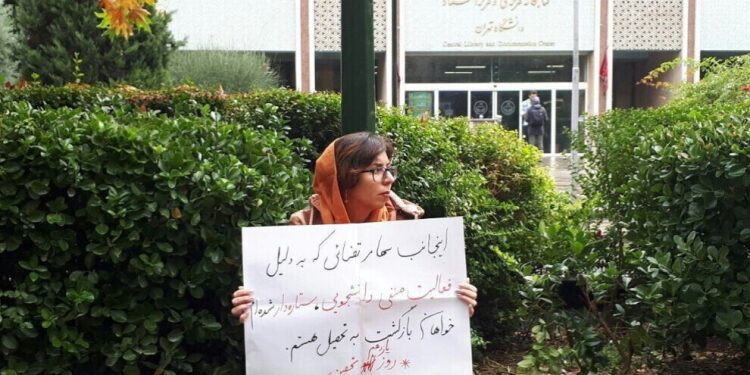 کتابخانه مرکزی و مرکز اسناد
دانشگاه تهران
Central Library and Documentation Center
اینجانب سها مرتضائی که به دلیل
فعالیت صنفی دانشجویی، ستاره‌دار شده‌ام
خواهان بازگشت به تحصیل هستم.
روز
تحصن